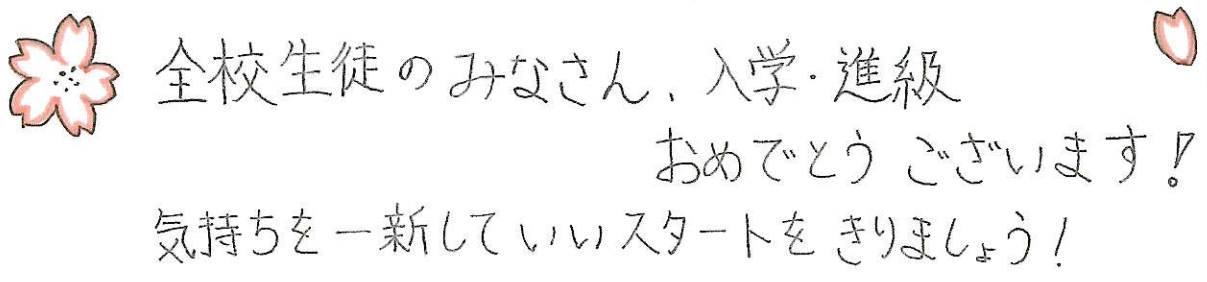 全校生徒のみなさん、入学・進級
おめでとうございます！
気持ちを一新していいスタートをきりましょう！